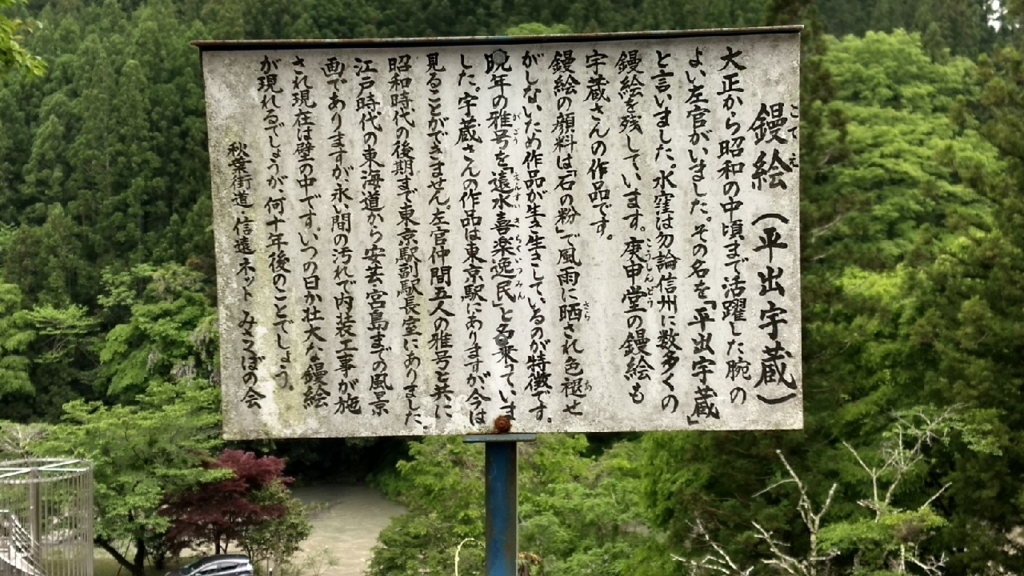 鏝絵（平出宇蔵）
大正から昭和の中頃まで活躍した腕の
よい左官がいました。その名を「平出宇蔵」
と言いました。水窪は勿論信州に数多くの
鏝絵を残しています。庚申堂の鏝絵も
宇蔵さんの作品です。
鏝絵の顔料は「石の粉」で風雨に晒され色褪せ
がしないため作品が生き生きしているのが特徴です。
晩年の雅号を遠永喜楽逸民と名乗っていま
した。宇蔵さんの作品は東京駅にありますが今は
見ることができません。左官仲間五人の雅号と共に
昭和時代の後期まで東京駅副駅長室にありました。
江戸時代の東海道から安芸の宮島までの風景
画でありますが、永い間の汚れで内装工事が施
され現在は壁の中です。いつの日か壮大な鏝絵
が現れるでしょうが、何十年後のことでしょう。
秋葉街道 信遠ネット みさくぼの会